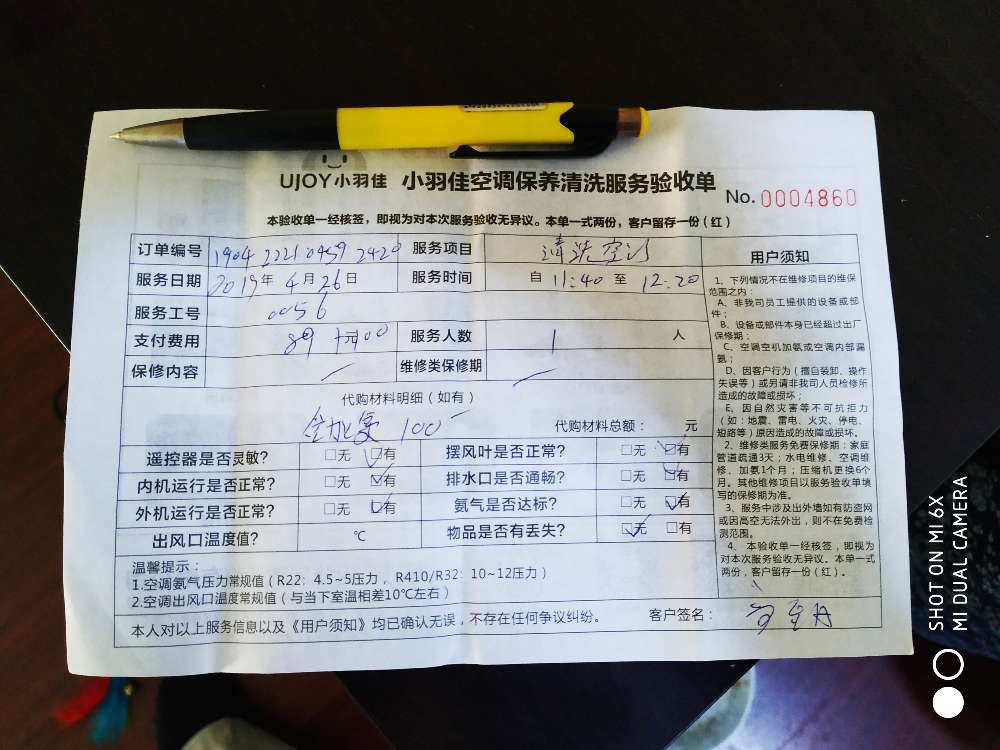 UJOY小羽佳 小羽佳空调保养清洗服务验收单
No. 0004860
本验收单一经核签，即视为对本次服务验收无异议。本单一式两份，客户留存一份（红）
订单编号 1904 2221 0459 2420 服务项目 清洗空调
服务日期 2019年4月26日 服务时间 自 11:40 至 12:20
服务工号 0056
支付费用 89元00 服务人数 1 人
保修内容 维修类保修期
代购材料明细（如有）
100
代购材料总额： 元
遥控器是否灵敏? □无 ☑有 摆风叶是否正常? □无 ☑有
内机运行是否正常? □无 ☑有 排水口是否通畅? □无 ☑有
外机运行是否正常? □无 ☑有 氨气是否达标? □无 ☑有
出风口温度值? ℃ 物品是否有丢失? ☑无 □有
温馨提示：
1.空调氨气压力常规值（R22：4.5~5压力，R410/R32：10~12压力）
2.空调出风口温度常规值（与当下室温相差10℃左右）
本人对以上服务信息以及《用户须知》均已确认无误，不存在任何争议纠纷。 客户签名：
用户须知
1、下列情况不在维修项目的维保
范围之内：
A、非我司员工提供的设备或部
件；
B、设备或部件本身已经超过出厂
保修期；
C、空调空机加氨或空调内部漏
氨；
D、因客户行为（擅自装卸、操作
失误等）或另请非我司人员检修所
造成的故障或损坏；
E、因自然灾害等不可抗拒力
（如：地震、雷电、火灾、停电、
短路等）原因造成的故障或损坏。
2、维修类服务免费保修期：家庭
管道疏通3天；水电维修、空调维
修、加氨1个月；压缩机更换6个
月。其他维修项目以服务验收单填
写的保修期为准。
3、服务中涉及出外墙如有防盗网
或因高空无法外出，则不在免费检
测范围。
4、本验收单一经核签，即视为
对本次服务验收无异议。本单一式
两份，客户留存一份（红）。
SHOT ON MI 6X
MI DUAL CAMERA